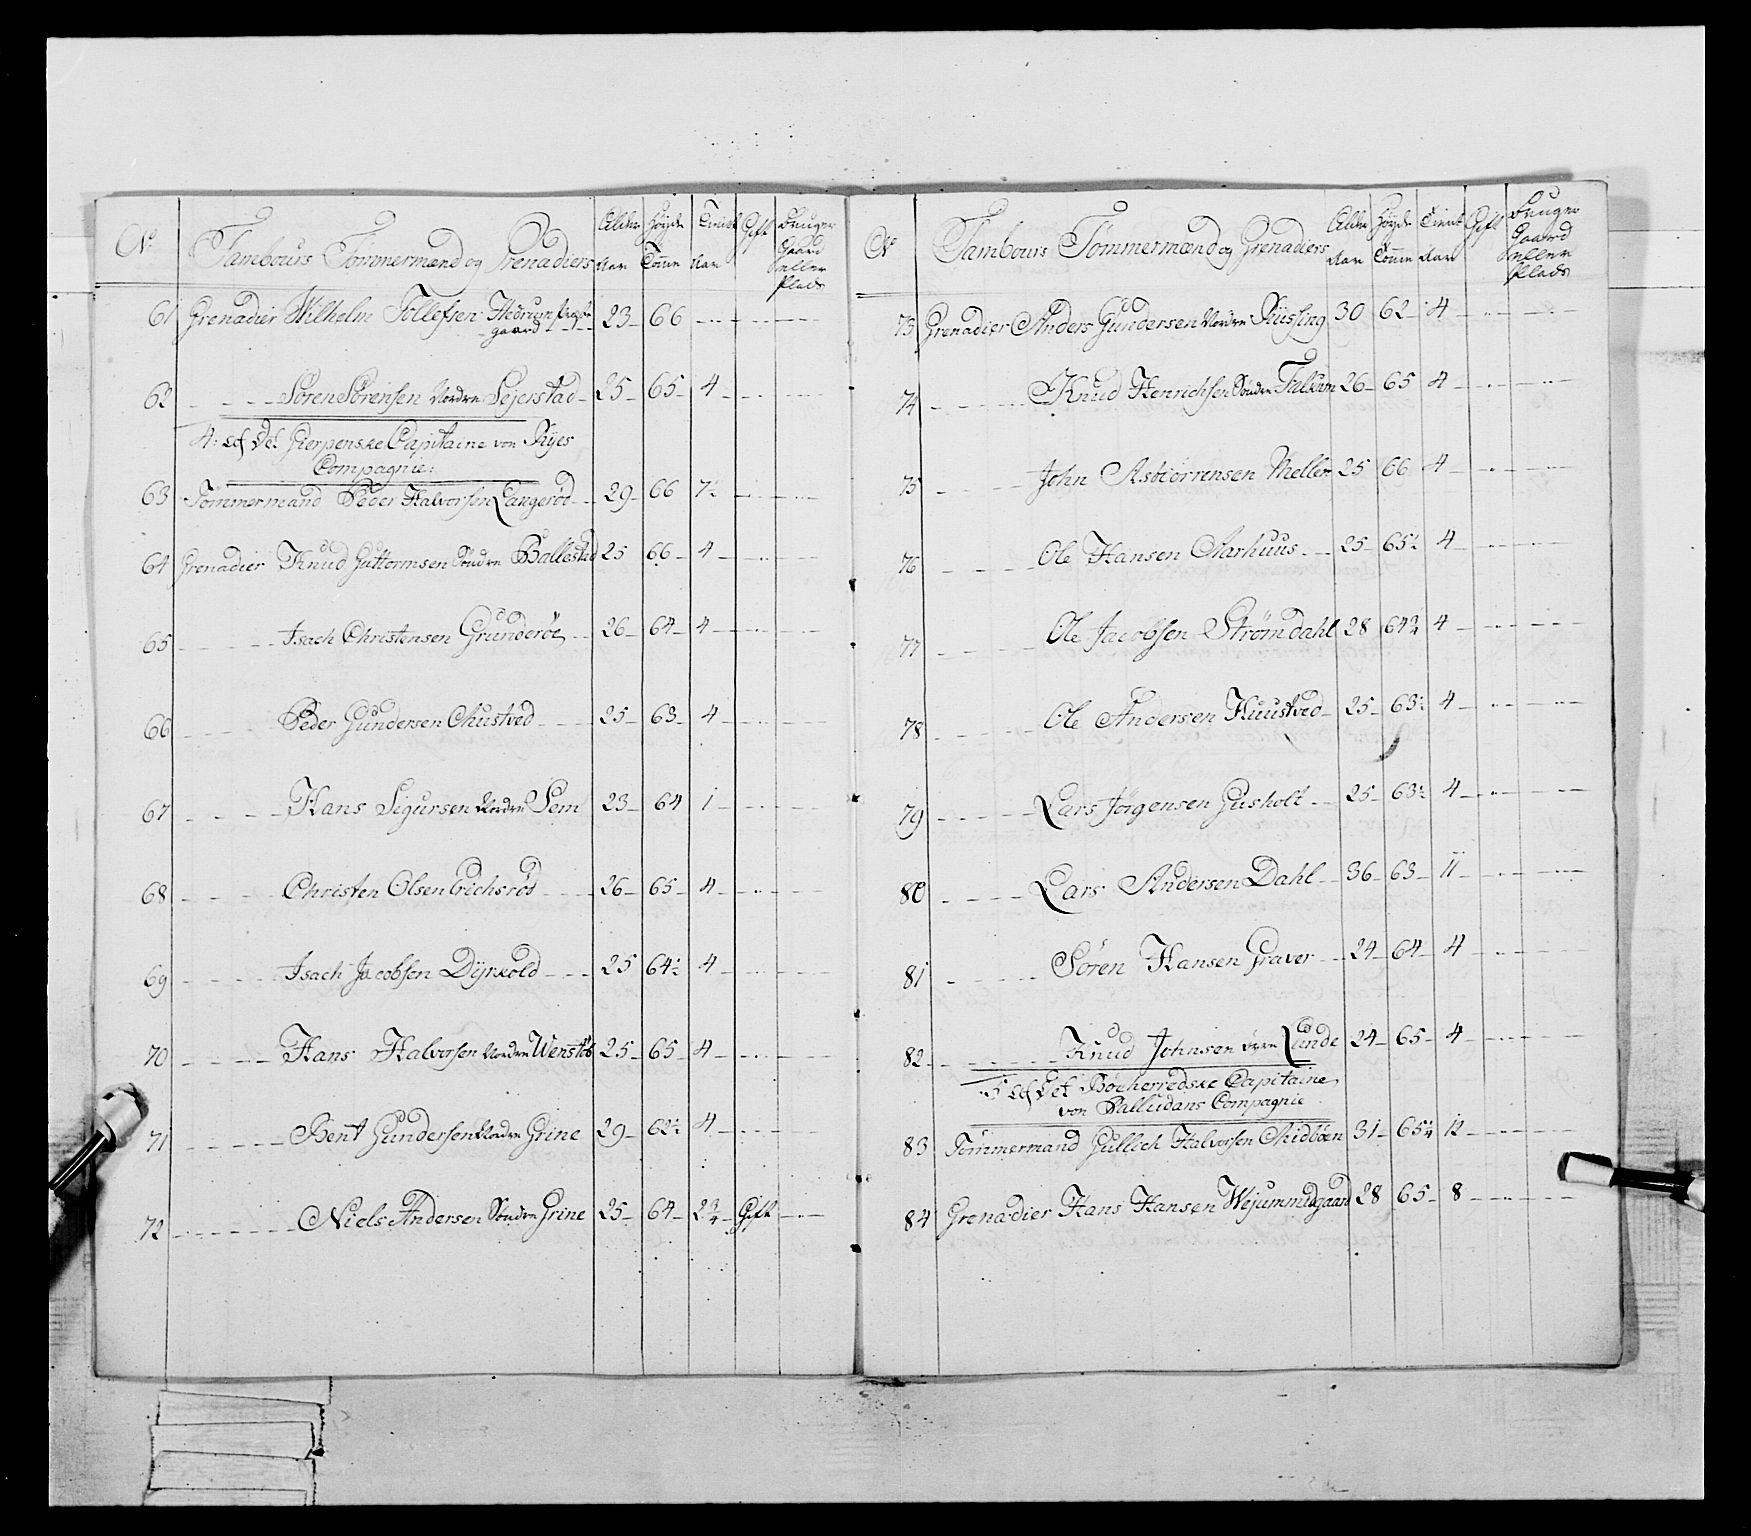 No Tambours Tømmermænd og Grenadiers Alder Aar Høyde Tomme Tient Aar Gift Bruger Gaard eller Plads
61 Grenadier Wilhelm Tollefsen Hedrum
gaard 23 66
62 Søren Sørensen Nordre Sejerstad 25 65 4
4: af Det Gierpenske Capitaine von Rÿes
Compagnie:
63 Tømmermand Peder Halvorsen Langerød 29 66 7½
64 Grenadier Knud Guttormsen Søndre Ballestad 25 66 4
65 Isach Christensen Grunderöe 26 64 4
66 Peder Gundersen Austved 25 63 4
67 Hans Sigursen Nordre Sem 23 64 1
68 Christen Olsen Erichsröd 26 65 4
69 Isach Jacobsen Dÿrkold 25 64½ 4
70 Hans Halvorsen Nordre Wenstöb 25 65 4
71 Bent Gundersen Nordre Grine 29 62½ 4
72 Niels Andersen Søndre Grine 25 64 2¾ Gift
No Tambours Tømmermænd og Grenadiers Alder Aar Høyde Tomme Tient Aar Gift Bruger Gaard eller Plads
73 Grenadier Anders Gundersen Nordre 30 62 4
74 Knud Henrichsen Søndre Falkum 26 65 4
75 John Asbiørrensen Mellem 25 66 4
76 Ole Hansen Aarhuus 25 65½ 4
77 Ole Jacobsen Strømdahl 28 64¾ 4
78 Ole Andersen Huustved 25 63½ 4
79 Lars Jørgensen Gusholt 25 63½ 4
80 Lars Andersen Dahl 36 63 11
81 Søren Hansen Graver 24 64 4
82 Knud Johnsen øvre Lunde 24 65 4
5 af Det Böeherredske Capitaine
von Palludans Compagnie
83 Tømmermand Gullich Halvorsen Midböen 31 65¼ 12
84 Grenadier Hans Hansen Wejummidgaard 28 65 8